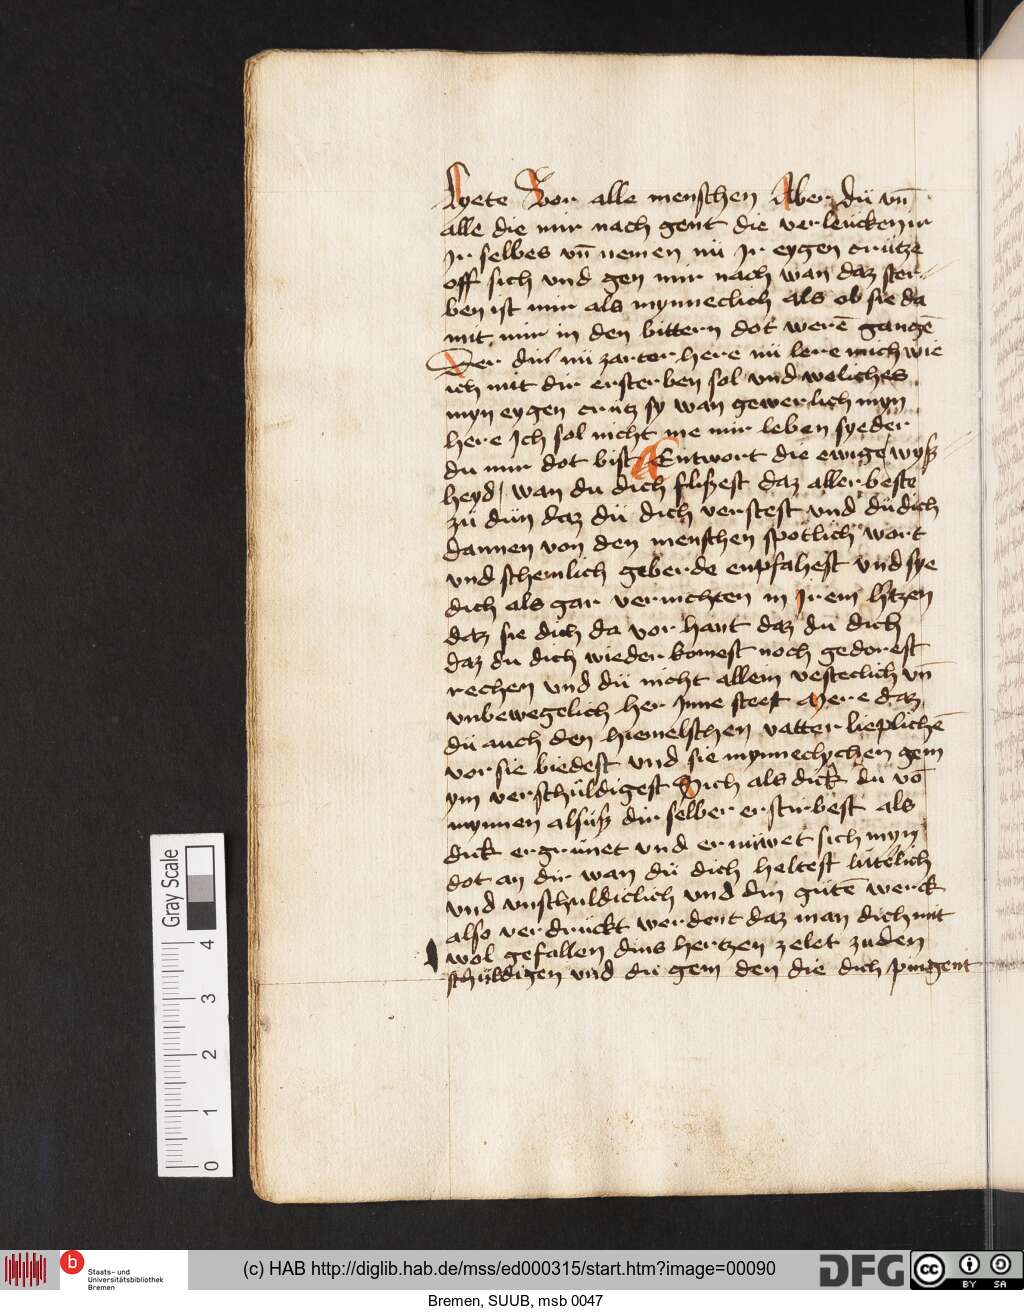 lyete Vor alle menschen Aber dü vn̄
alle die mir nach gent die verleücken ir
Ir selbes vn̄ nemen nü Ir eygen crütze
off sich vnd gen mir nach wan daz ster-
ben ist mir als mynneclich als ob sie da
mit mir in den bittern dot werē gangē
Der din nü zarter here nü lere mich wie
ich mit dir ersterben sol vnd weliches
myn eygen crütz sy wan gewerlich myn
here Ich sol nicht me mir leben syeder
du mir dot bist Entwort die ewige wyß
heyd / wan du dich flißest daz aller beste
zü dün daz dü dich verstest vnd dü dich
dannen von den menschen spötlich wort
vnd schemlich geberde enpfahest vnd sye
dich als gar vernichten in Irem h'tzen
daz sie dich da vor hant daz du dich
daz du dich wieder komest noch gedorest
rechen vnd dü nicht allein vesteclich vn̄
vnbewegelich her Inne steest Mere daz
dü auch den hiemelschen vatter lieplichē
vor sie biedest vnd sie mynneclychen gem
ym verschüldigest Sich als dick du vō
mynnen alsüß dir selber erstirbest als
dick ergrünet vnd ernüwet sich myn
dot an dir wan dü dich heltest lütelich
vnd vnschuldiclich vnd din gütē werck
also verdrückt werdent daz man dich mit
wol gefallen dins hertzen zelet zu den
schüldigen vnd du gern den die dich pingent
Gray Scale
4
3
2
1
0
Staats- und
Universitätsbibliothek
Bremen
(c) HAB http://diglib.hab.de/mss/ed000315/start.htm?image=00090
DFG
cc BY SA
Bremen, SUUB, msb 0047